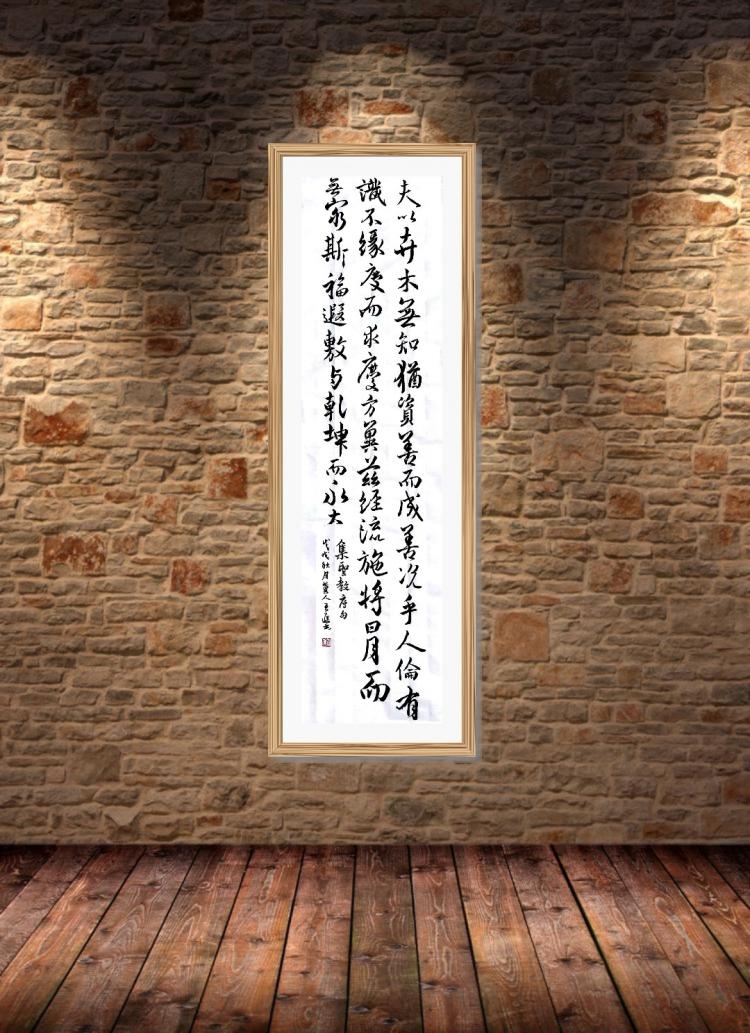 夫以卉木無知猶資善而成善况乎人倫有
識不緣慶而求慶方冀茲經流施將日月而
無窮斯福遐敷与乾坤而永大
集聖教序句
戊戌秋月